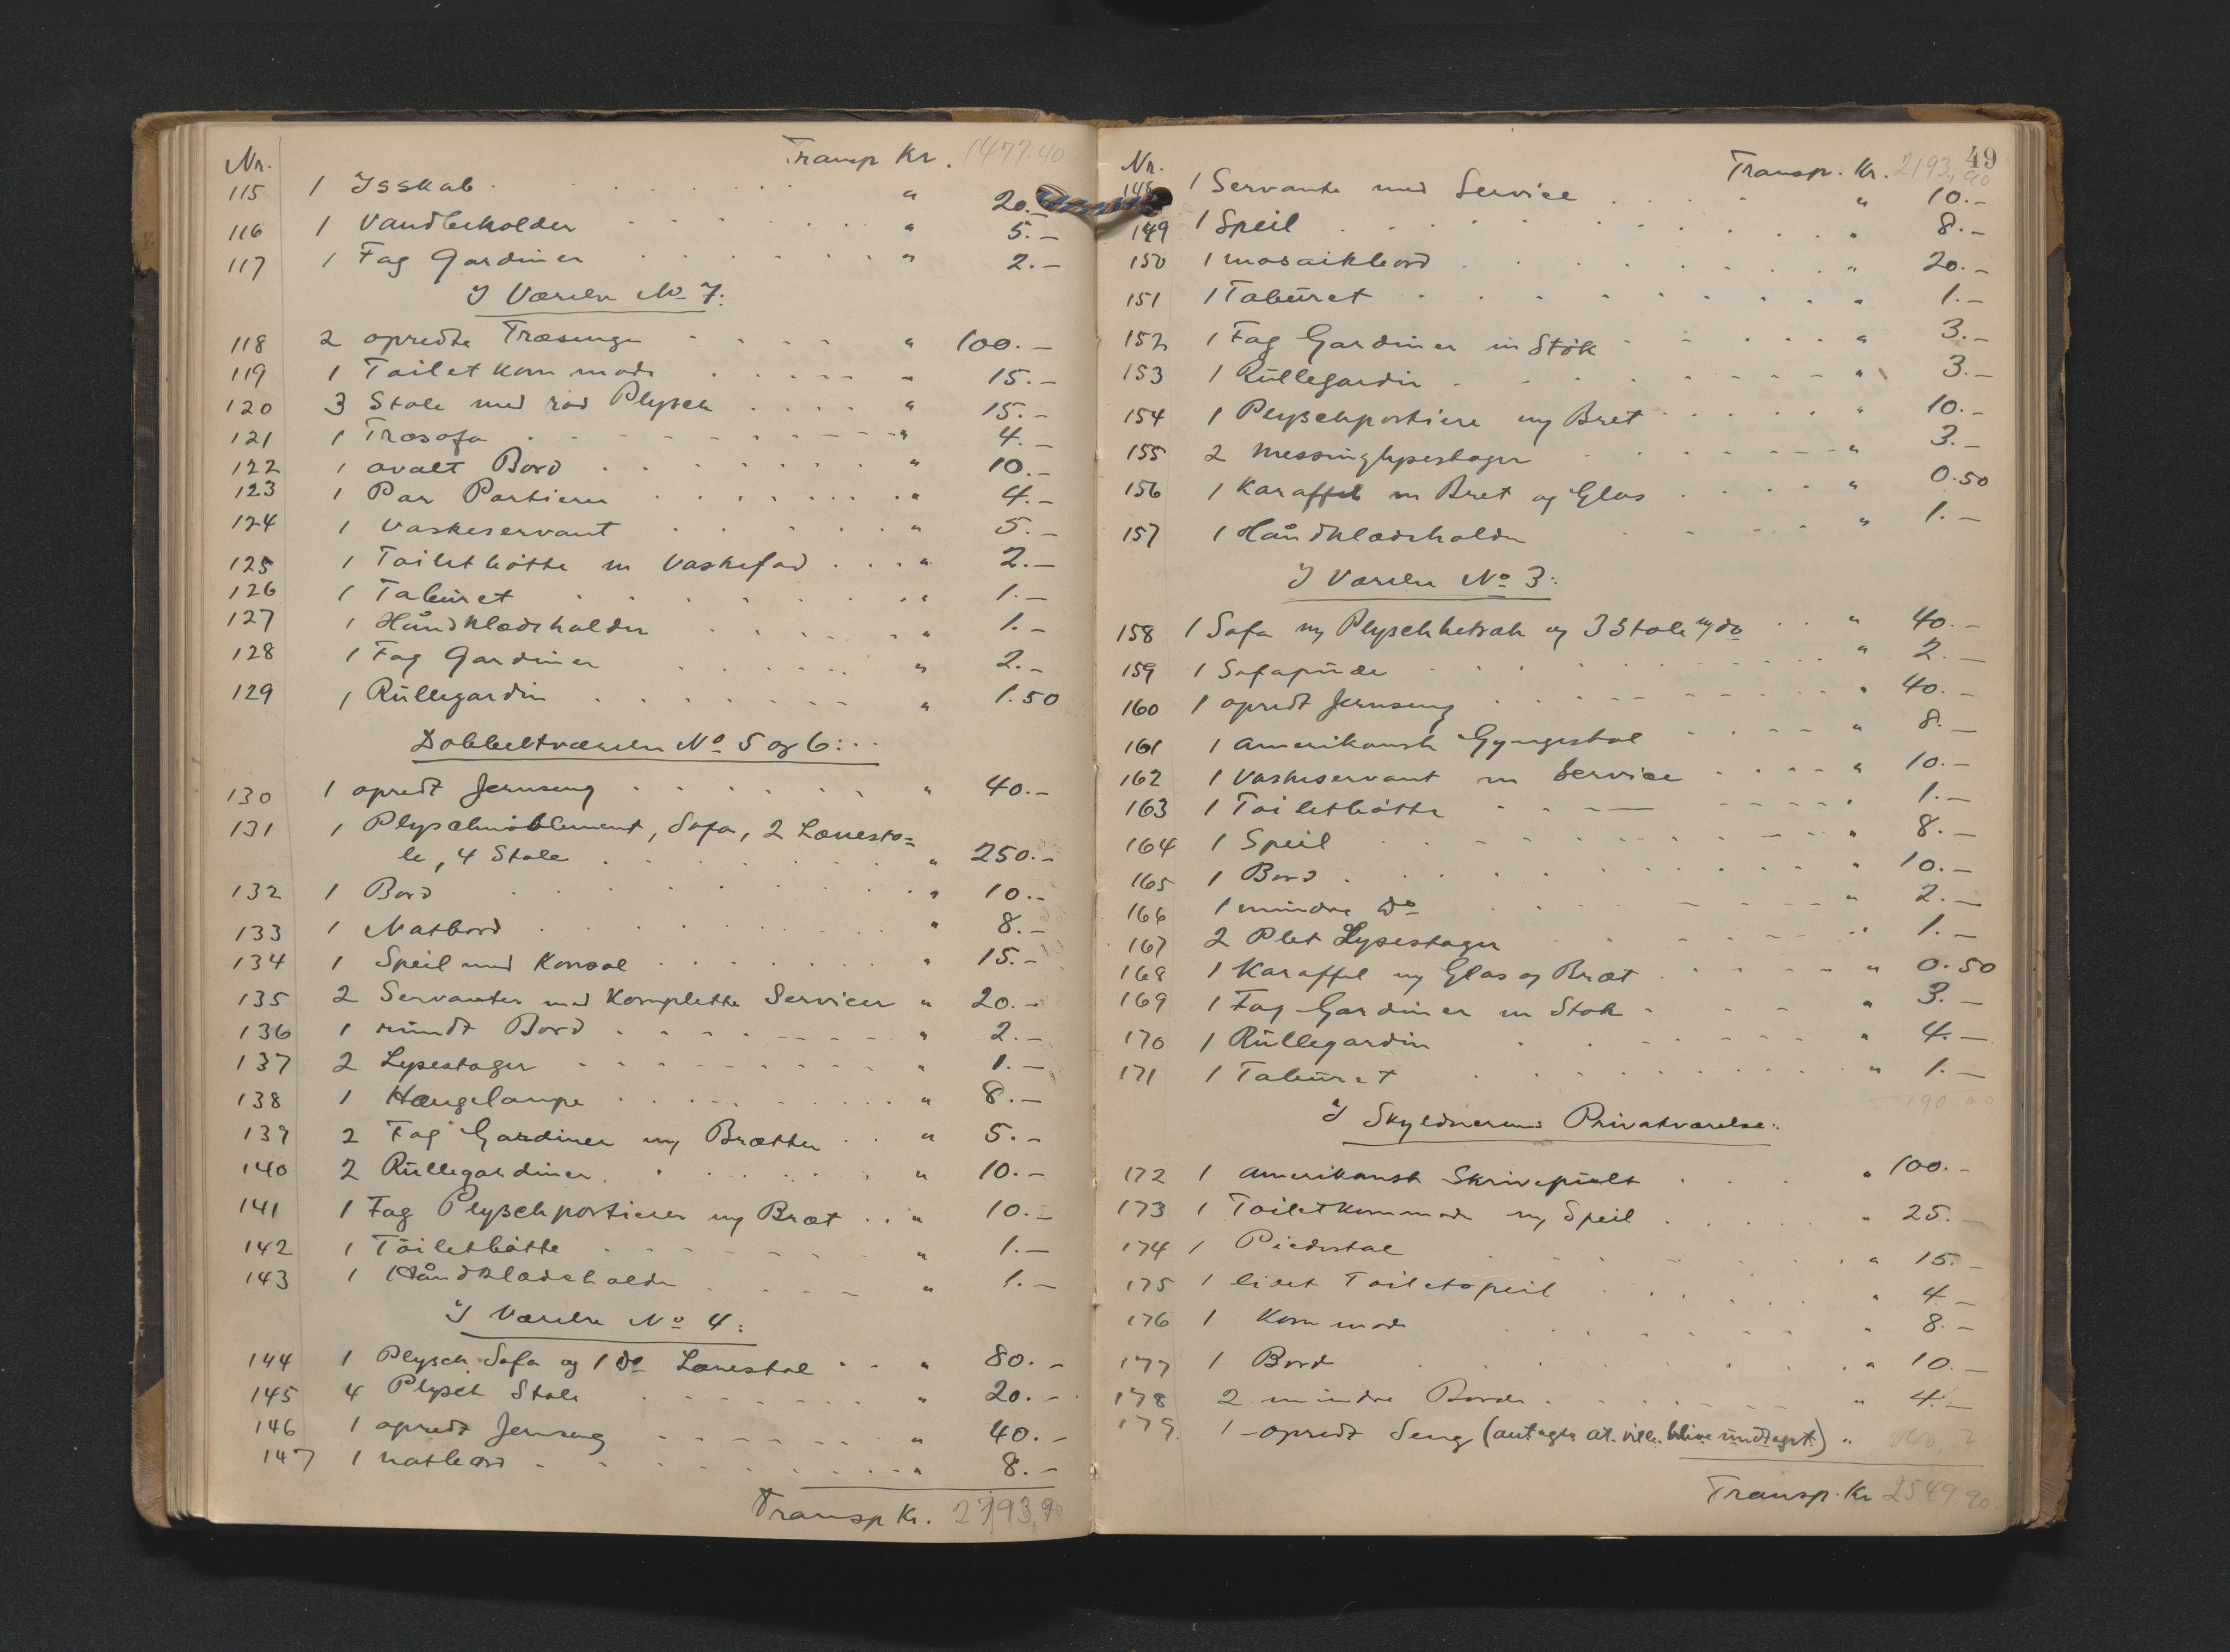 Nr. Transp Kr. 1477.40
115 1 Isskab . . . . . . " 20.-
116 1 Vandbeholder . . . . . " 5.-
117 1 Fag Gardiner . . . . . . " 2.-
I Værelse No 7:
118 2 opredte Træsenge . . . . " 100.-
119 1 Toiletkommode . . . . . " 15.-
120 3 Stole med rød Plysch . . . . " 15.-
121 1 Træsofa . . . . . . . . " 4.-
122 1 ovalt Bord . . . . . . . " 10.-
123 1 Par Portierer . . . . . . . " 4.-
124 1 Vaskeservant . . . . . . " 5.-
125 1 Toiletbøtte m Vaskefad . . . " 2.-
126 1 Taburet . . . . . . . . " 1.-
127 1 Håndklædeholder . . . . . . " 1.-
128 1 Fag Gardiner . . . . . . " 2.-
129 1 Rullegardin . . . . . . . . " 1.50
Dobbeltværelse No 5 og 6:
130 1 opredt Jernseng . . . . . . . " 40.-
131 1 Plyschmøblement, Sofa, 2 Lænesto=
le, 4 Stole . . . . . . . . " 250.-
132 1 Bord . . . . . . . . . . " 10.-
133 1 Natbord . . . . . . . . . " 8.-
134 1 Speil med Konsol . . . . . . . " 15.-
135 2 Servanter med Komplette Servicer " 20.-
136 1 rundt Bord . . . . . . . . " 2.-
137 2 Lysestager . . . . . . . . . " 1.-
138 1 Hængelampe . . . . . . . . . " 8.-
139 2 Fag Gardiner m/ Brætter . . " 5.-
140 2 Rullegardiner . . . . . . " 10.-
141 1 Fag Plyschportierer m/ Bræt . . " 10.-
142 1 Toiletbøtte . . . . . . . " 1.-
143 1 Håndklædeholder . . . . " 1.-
I Værelse No 4:
144 1 Plysch Sofa og 1 do Lænestol . . " 80.-
145 4 Plysch Stole . . . . . . . " 20.-
146 1 opredt Jernseng . . . . . . " 40.-
147 1 natbord . . . . . . . . . " 8.-
Transp Kr. 2193,90
49
Nr. Transp. Kr. 2193,90
148 1 Servante med Service . . . . . " 10.-
149 1 Speil . . . . . . . . . . . " 8.-
150 1 mosaikbord . . . . . . . . . " 20.-
151 1 Taburet . . . . . . . . . . " 1.-
152 1 Fag Gardiner m Stok . . . . . " 3.-
153 1 Rullegardin . . . . . . . . " 3.-
154 1 Plyschportiere m/ Bret . . . . . " 10.-
155 2 Messinglysestager . . . . . . . " 3.-
156 1 Karaffel m Bret og Glas . . . . " 0.50
157 1 Håndklædeholder . . . . " 1.-
I Værelse No 3:
158 1 Sofa m/ Plyschbetræk og 3 Stole m/ do . . " 40.-
159 1 Sofapude . . . . . . . . . . " 2.-
160 1 opredt Jernseng . . . . . . . . " 40.-
161 1 amerikansk Gyngestol . . . . . " 8.-
162 1 Vaskeservant m Service . . . . " 10.-
163 1 Toiletbøtte . . . . . . . . " 1.-
164 1 Speil . . . . . . . . . . " 8.-
165 1 Bord . . . . . . . . . . " 10.-
166 1 mindre do . . . . . . . . " 2.-
167 2 Plet Lysestager . . . . . . . " 1.-
168 1 Karaffel m/ Glas og Bræt . . . . . " 0.50
169 1 Fag Gardiner m Stok . . . . " 3.-
170 1 Rullegardin . . . . . . . " 4.-
171 1 Taburet . . . . . . . . . . " 1.-
190.00
I Skyldnerens Privatværelse:
172 1 amerikansk Skrivepult . . . . " 100.-
173 1 Toiletkommode m/ Speil . . . . . " 25.-
174 1 Piedestal . . . . . . . . " 15.-
175 1 lidet Toiletspeil . . . . . . " 4.-
176 1 Kommode . . . . . . . . " 8.-
177 1 Bord . . . . . . . . . " 10.-
178 2 mindre Borde . . . . . . . " 4.-
179. 1 opredt Seng (antages at ville blive undtaget) " 40,
Transp. Kr 2549.90